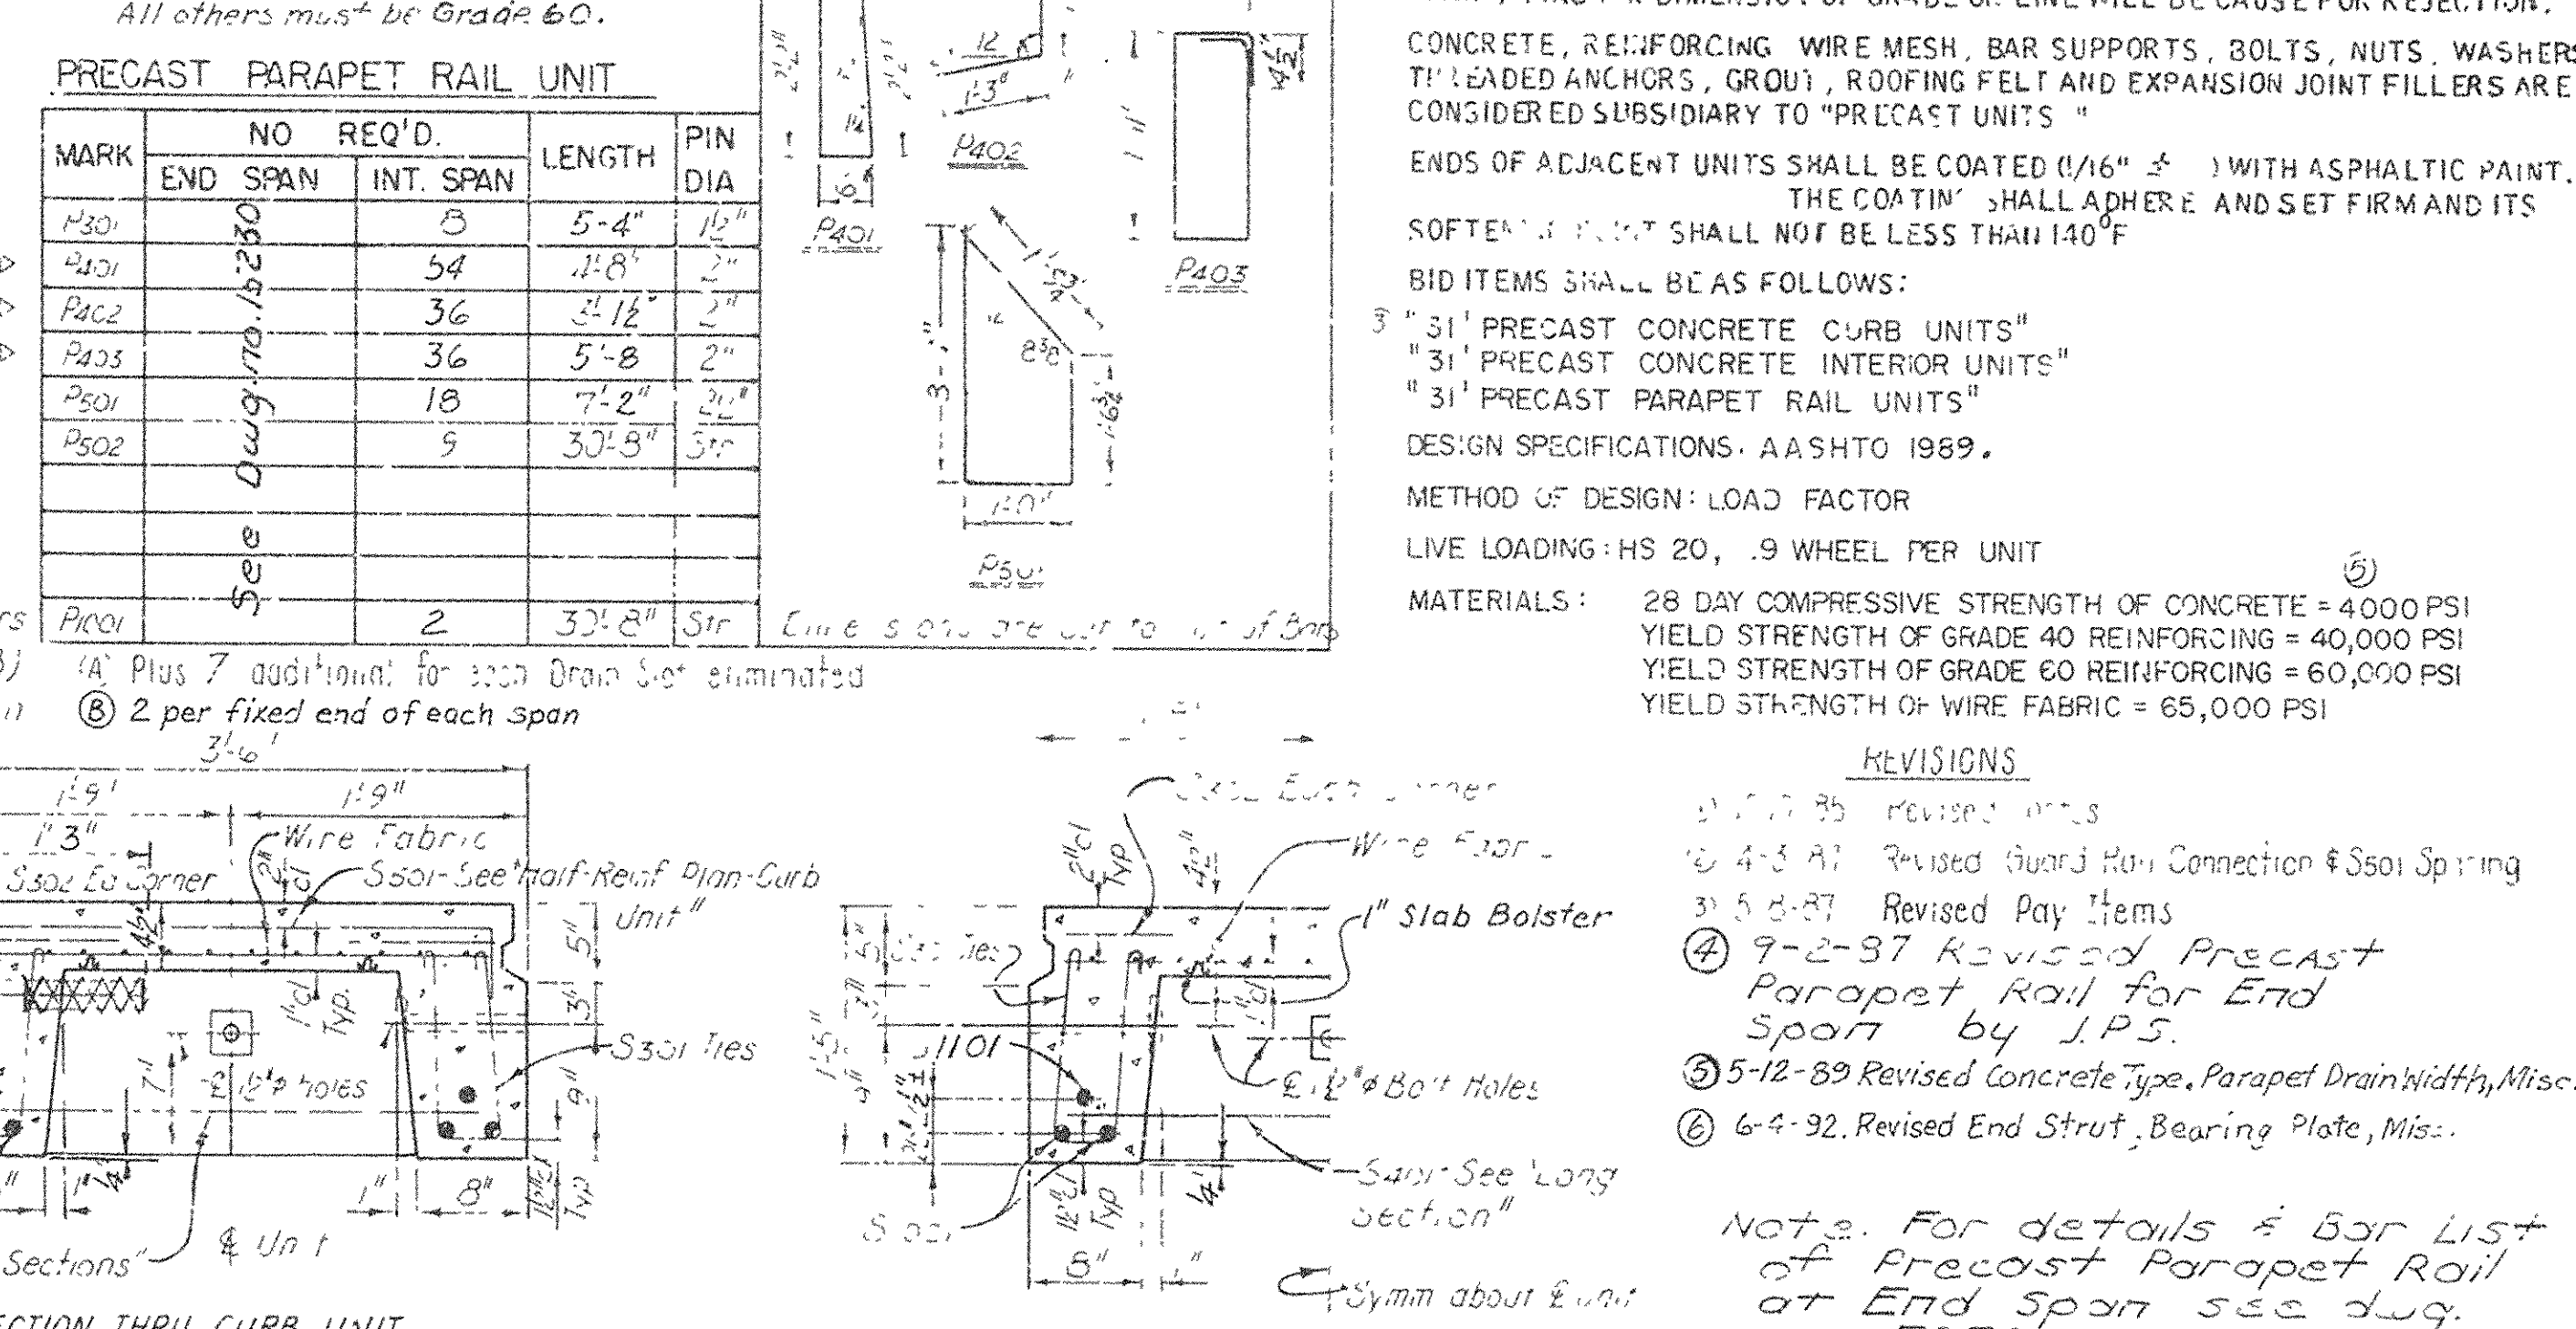 All others must be Grade 60.
PRECAST PARAPET RAIL UNIT
MARK
NO REQ'D.
END SPAN
INT. SPAN
LENGTH
PIN DIA
P301 8 5-4" 1½"
P401 54 4'-8" 2"
P402 36 3'-1½" 2"
P403 36 5'-8 2"
P501 18 7'-2"
P502 9 30'-8" Str
P1001 2 30'-8" Str
See Dwg. no. 15230
(A) Plus 7 additional for each Drain Slot eliminated
(B) 2 per fixed end of each span
12
1'-3"
P402
6"
P401
4½"
P403
8⅜
1'-6¾"
1'-0"
P501
CONCRETE, REINFORCING WIRE MESH, BAR SUPPORTS, BOLTS, NUTS, WASHERS
THREADED ANCHORS, GROUT, ROOFING FELT AND EXPANSION JOINT FILLERS ARE
CONSIDERED SUBSIDIARY TO "PRECAST UNITS "
ENDS OF ADJACENT UNITS SHALL BE COATED (1/16" ± ) WITH ASPHALTIC PAINT.
THE COATING SHALL ADHERE AND SET FIRM AND ITS
SOFTENING POINT SHALL NOT BE LESS THAN 140°F
BID ITEMS SHALL BE AS FOLLOWS:
3) "31' PRECAST CONCRETE CURB UNITS"
"31' PRECAST CONCRETE INTERIOR UNITS"
"31' PRECAST PARAPET RAIL UNITS"
DESIGN SPECIFICATIONS. AASHTO 1989.
METHOD OF DESIGN: LOAD FACTOR
LIVE LOADING: HS 20, .9 WHEEL PER UNIT
(5)
MATERIALS: 28 DAY COMPRESSIVE STRENGTH OF CONCRETE = 4000 PSI
YIELD STRENGTH OF GRADE 40 REINFORCING = 40,000 PSI
YIELD STRENGTH OF GRADE 60 REINFORCING = 60,000 PSI
YIELD STRENGTH OF WIRE FABRIC = 65,000 PSI
REVISIONS
85 Revised
4-3-87 Revised Guard Rail Connection & S501 Spacing
3) 5-8-87 Revised Pay Items
(4) 9-2-87 Revised Precast
Parapet Rail for End
Span by J.P.S.
(5) 5-12-89 Revised Concrete Type, Parapet Drain Width, Misc.
(6) 6-4-92. Revised End Strut, Bearing Plate, Misc.
Note. For details & Bar List
of Precast Parapet Rail
at End Span see dwg.
3'-6"
1'-9" 1'-9"
1' 3"
Wire Fabric
S302 Ea Corner
S501-See "Half-Reinf Plan-Curb
Unit"
4½"
2" cl
5"
3"
9"
1" cl Typ.
S301 Ties
7"
℄ 1½"φ holes
¼"
1"
1" 8"
1½" cl Typ
Sections"
℄ Unit
SECTION THRU CURB UNIT
2" cl Typ
4½"
Wire
1" Slab Bolster
1'-5"
5"
9"
1101
℄ 1½"φ Bolt Holes
S401-See "Long
Section"
1½" cl Typ
¼"
8" 1"
Symm about ℄ unit